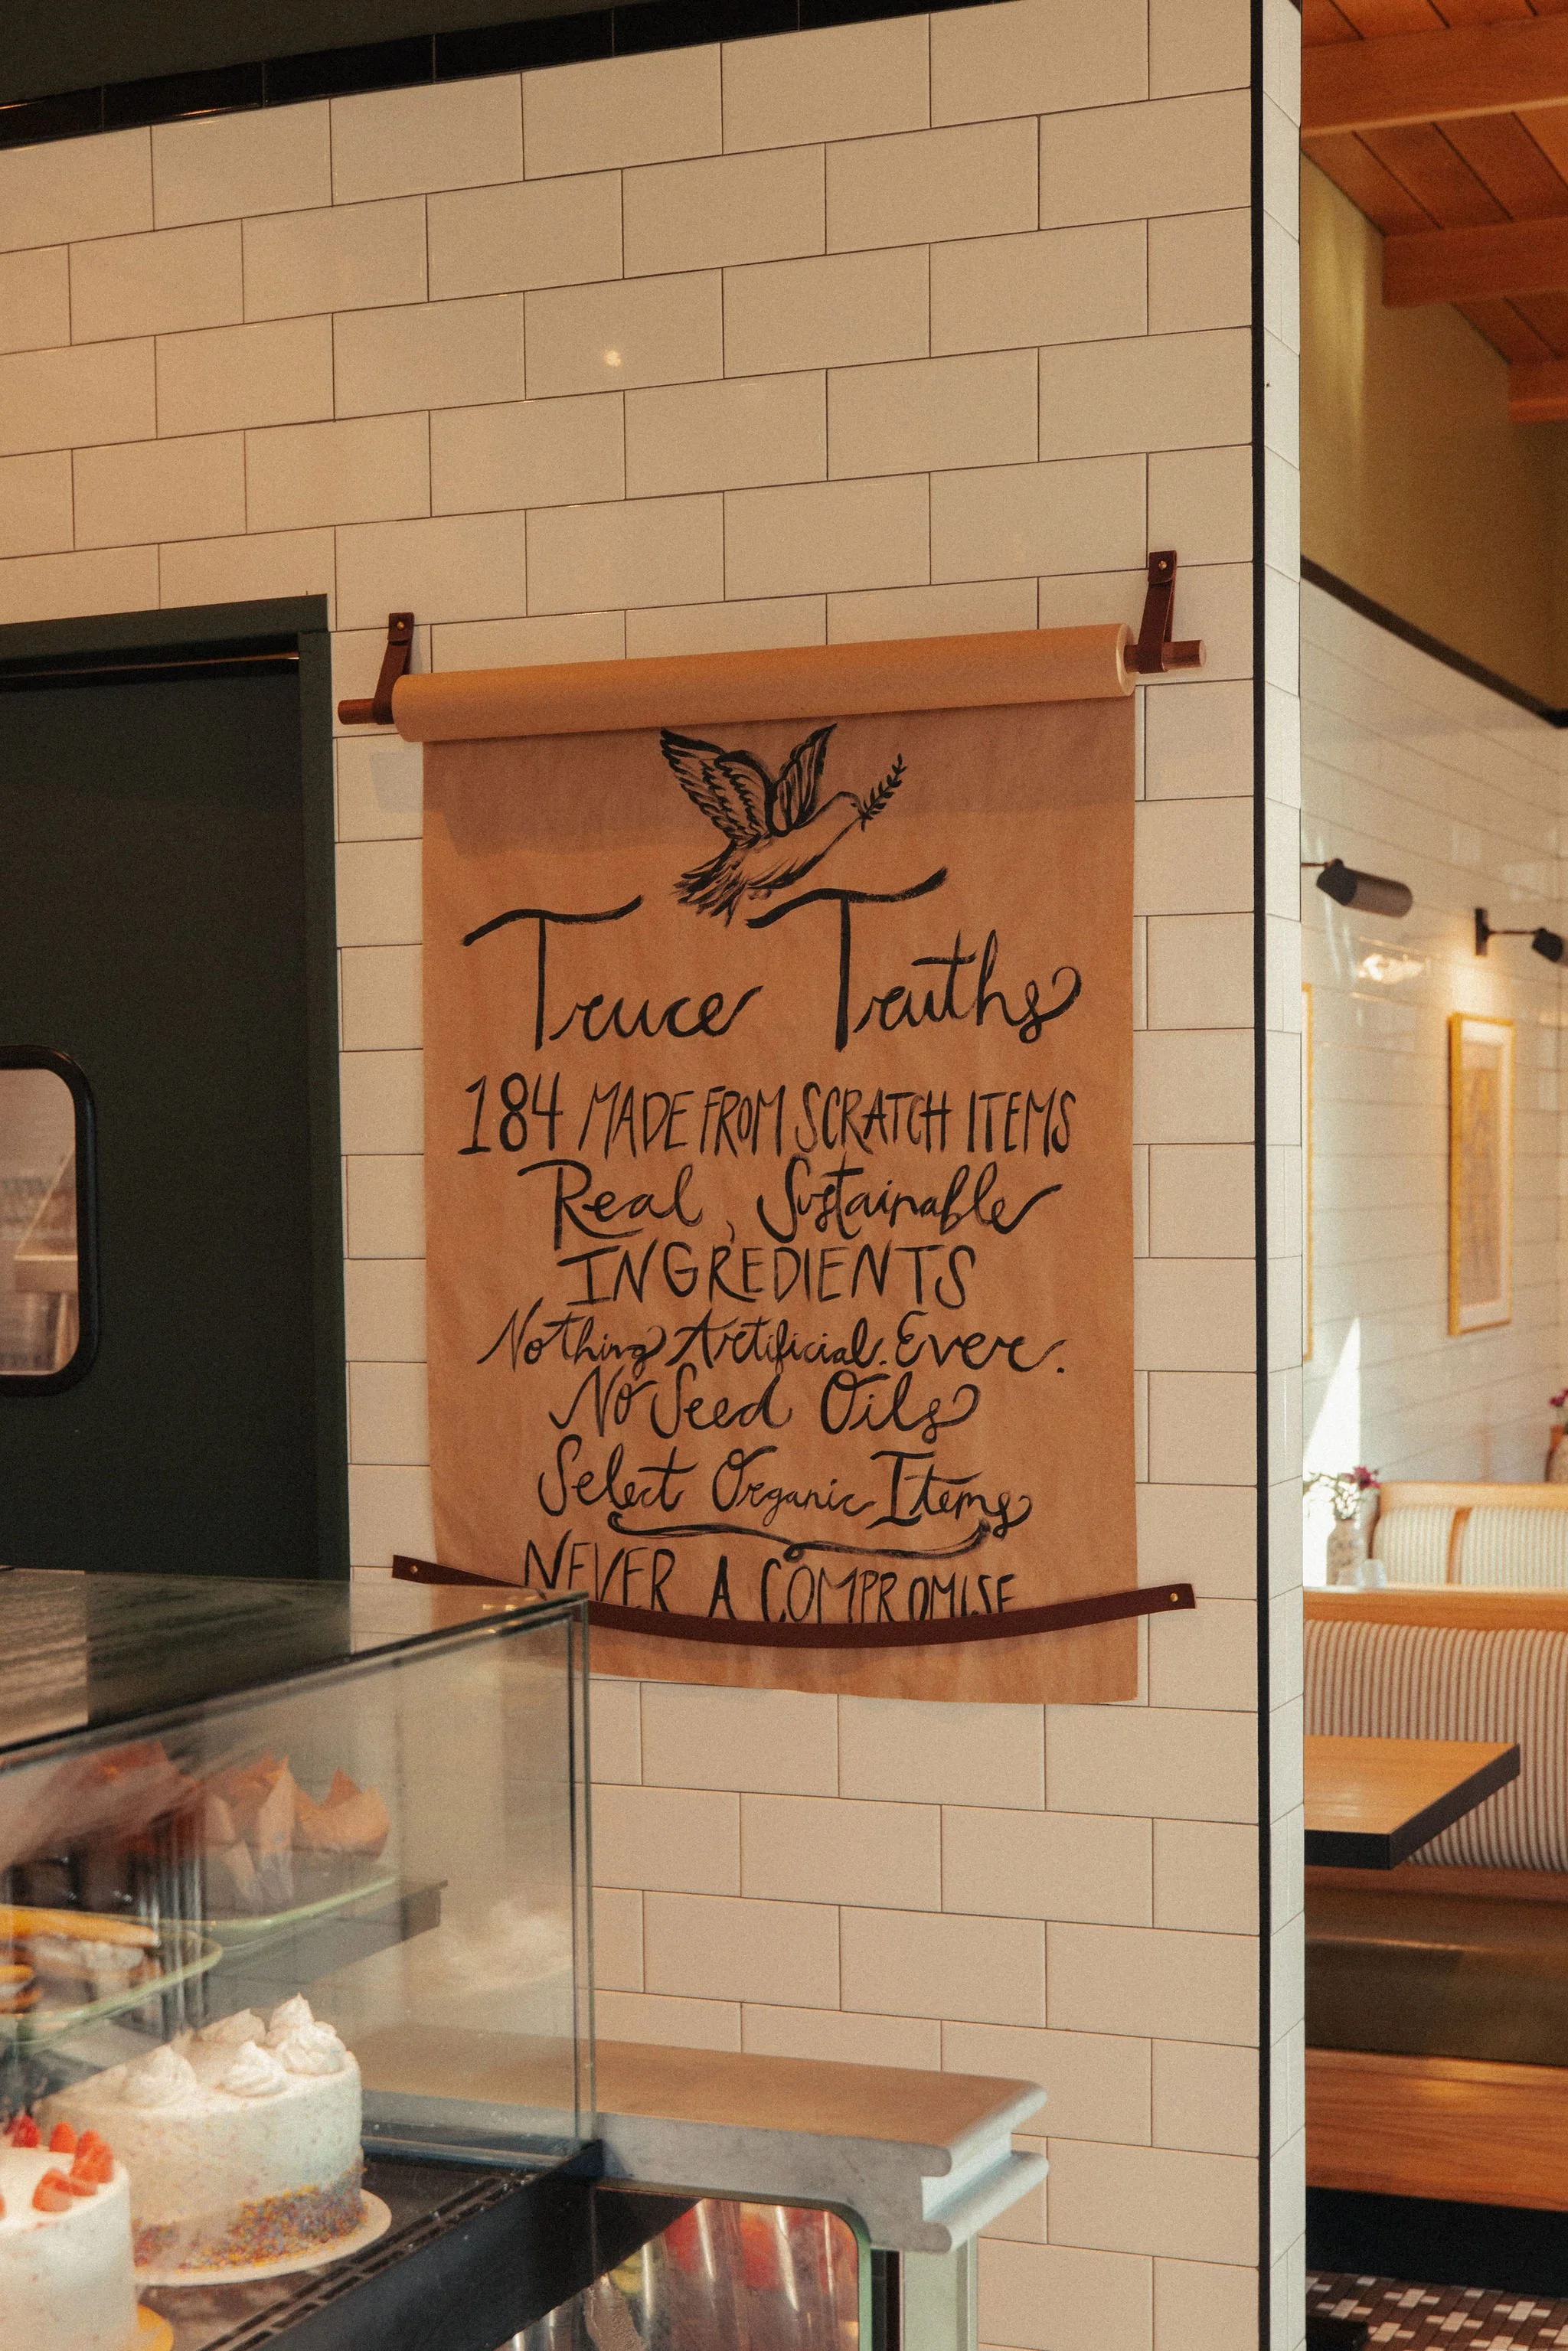 Truce Truths
184 MADE FROM SCRATCH ITEMS
Real, Sustainable
INGREDIENTS
Nothing Artificial. Ever.
No Seed Oils
Select Organic Items
NEVER A COMPROMISE